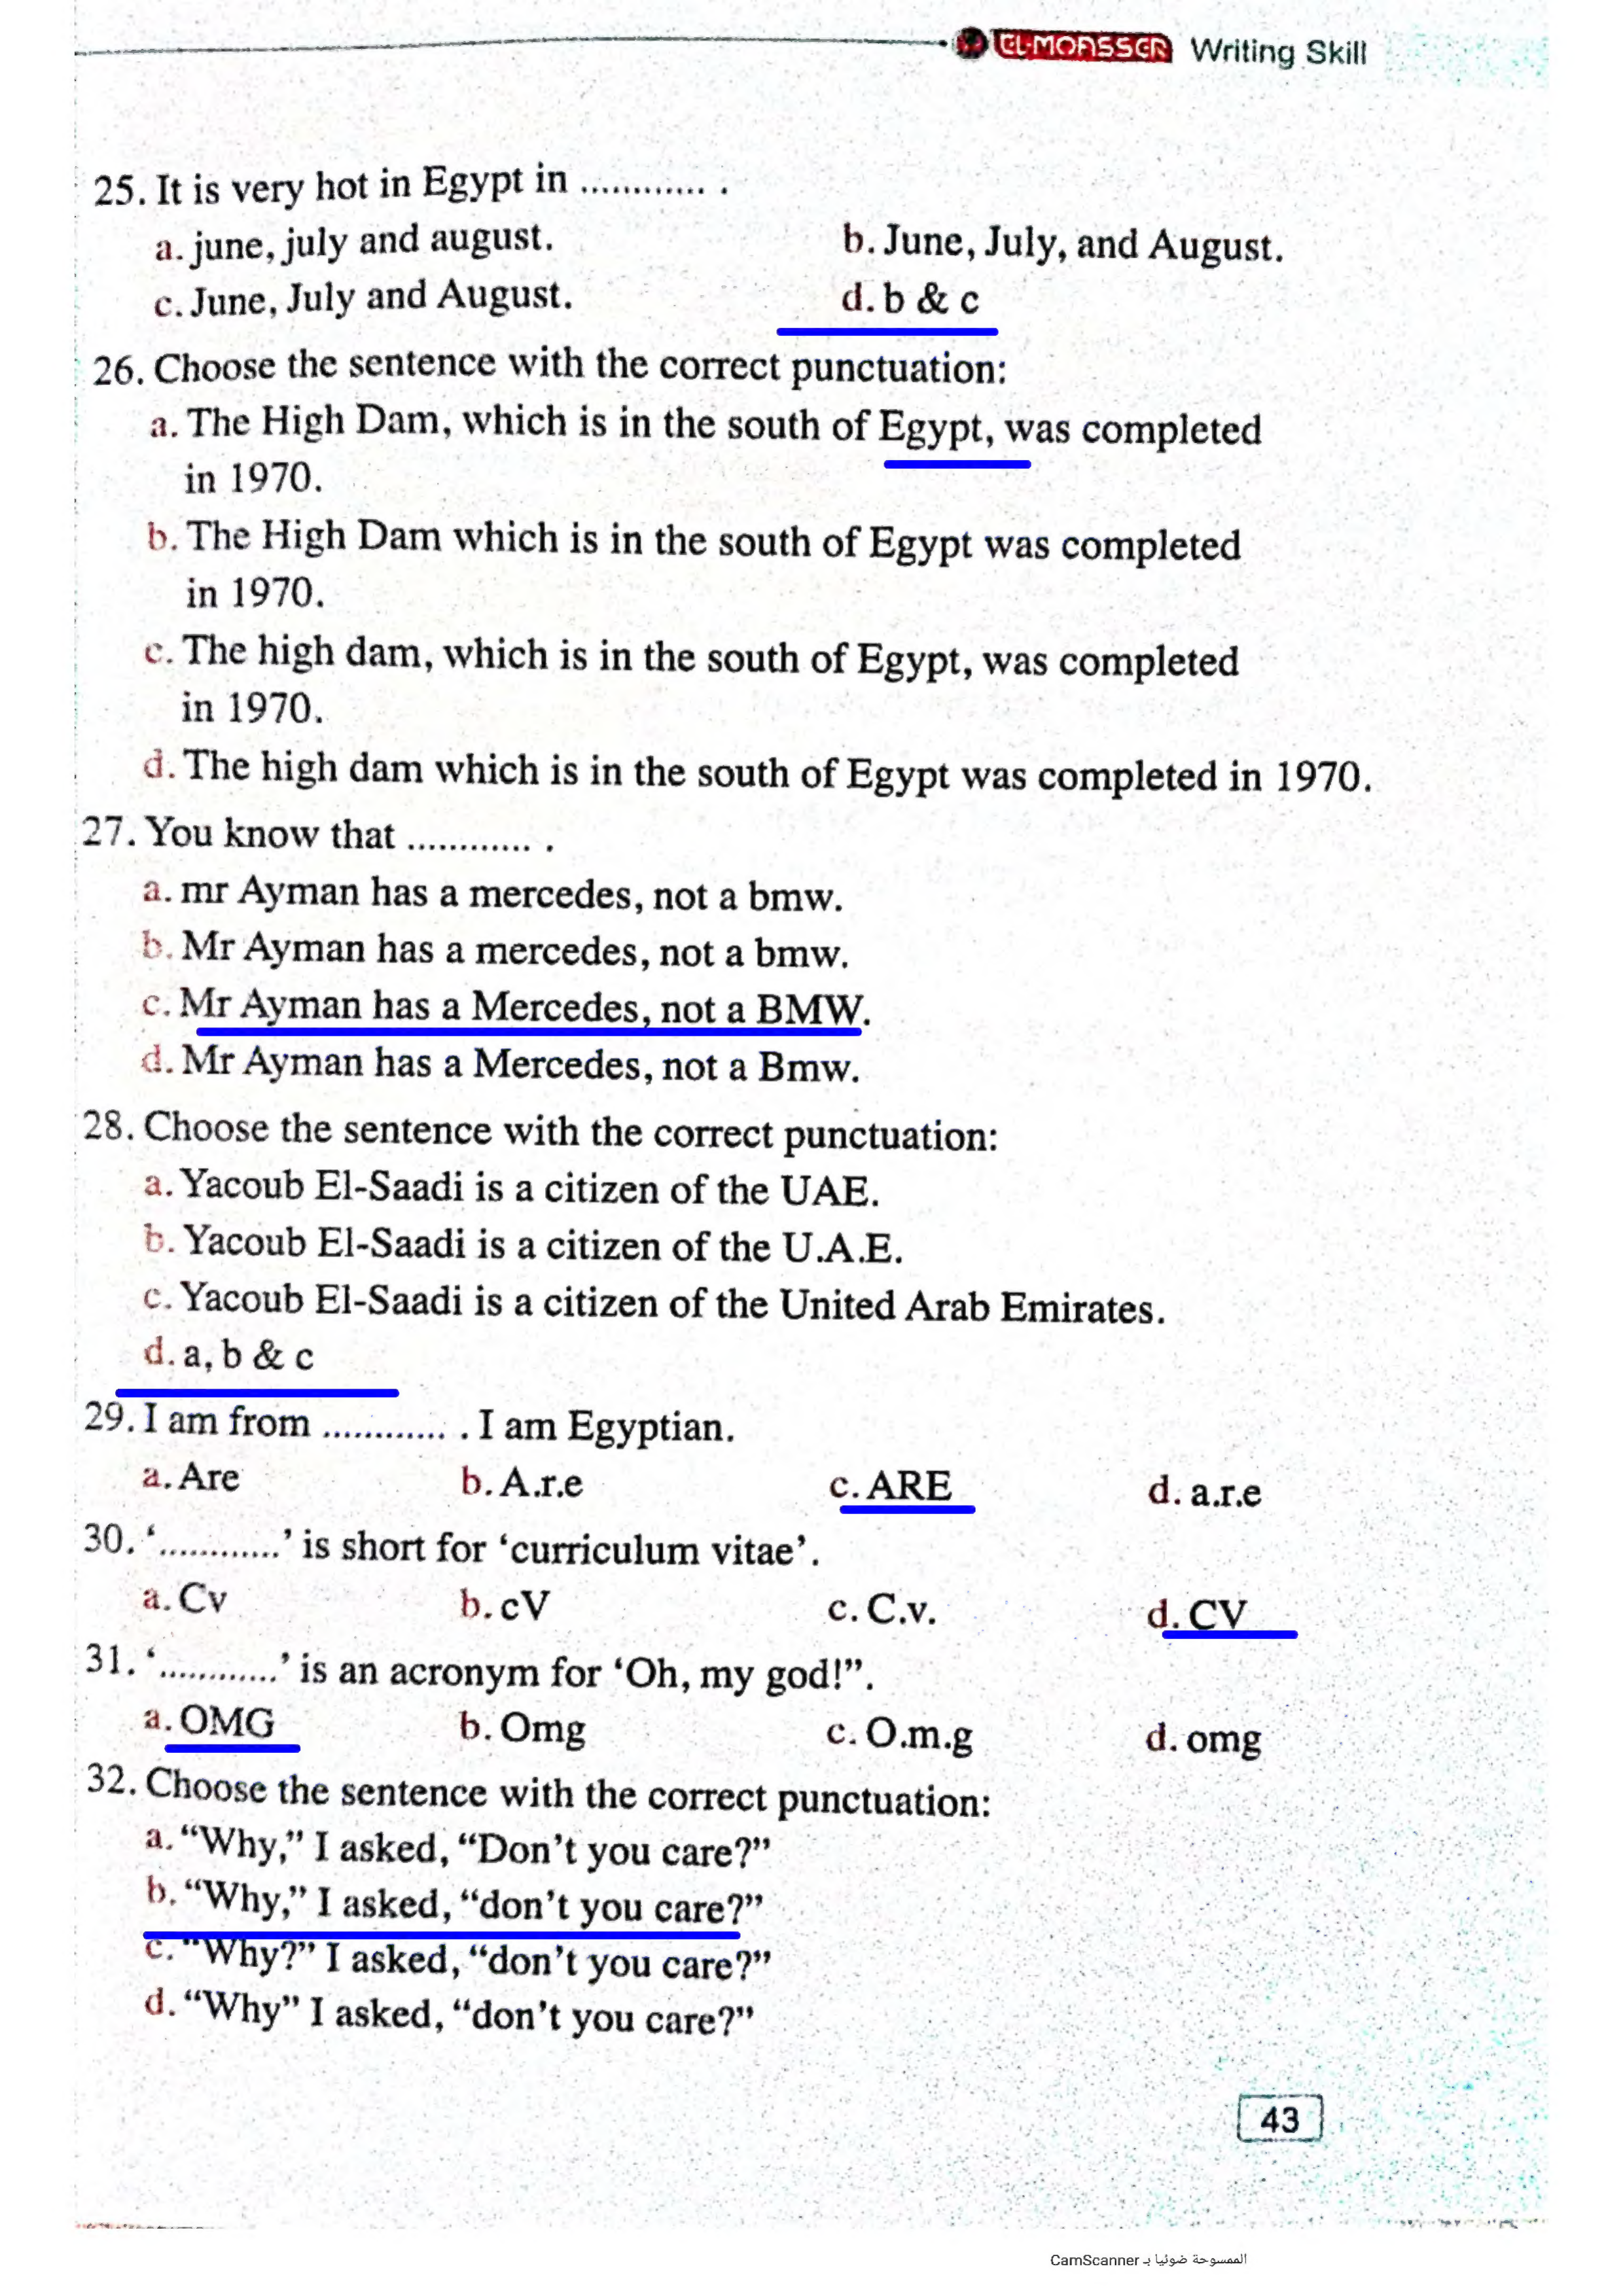 EL-MOASSER Writing Skill
25. It is very hot in Egypt in ............ .
a. june, july and august.
b. June, July, and August.
c. June, July and August.
d. b & c
26. Choose the sentence with the correct punctuation:
a. The High Dam, which is in the south of Egypt, was completed
in 1970.
b. The High Dam which is in the south of Egypt was completed
in 1970.
c. The high dam, which is in the south of Egypt, was completed
in 1970.
d. The high dam which is in the south of Egypt was completed in 1970.
27. You know that ............ .
a. mr Ayman has a mercedes, not a bmw.
b. Mr Ayman has a mercedes, not a bmw.
c. Mr Ayman has a Mercedes, not a BMW.
d. Mr Ayman has a Mercedes, not a Bmw.
28. Choose the sentence with the correct punctuation:
a. Yacoub El-Saadi is a citizen of the UAE.
b. Yacoub El-Saadi is a citizen of the U.A.E.
c. Yacoub El-Saadi is a citizen of the United Arab Emirates.
d. a, b & c
29. I am from ............ . I am Egyptian.
a. Are b. A.r.e c. ARE d. a.r.e
30. ‘............’ is short for ‘curriculum vitae’.
a. Cv b. cV c. C.v. d. CV
31. ‘............’ is an acronym for ‘Oh, my god!”.
a. OMG b. Omg c. O.m.g d. omg
32. Choose the sentence with the correct punctuation:
a. “Why,” I asked, “Don’t you care?”
b. “Why,” I asked, “don’t you care?”
c. “Why?” I asked, “don’t you care?”
d. “Why” I asked, “don’t you care?”
43
الممسوحة ضوئيا بـ CamScanner